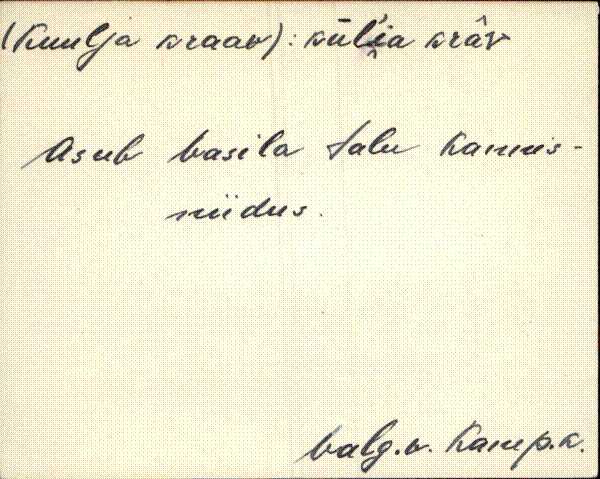 (Kuulja kraav): kūl'i̯a krâv
Asub basila talu kannis-
niidus.
balg.v. Kamp.k.